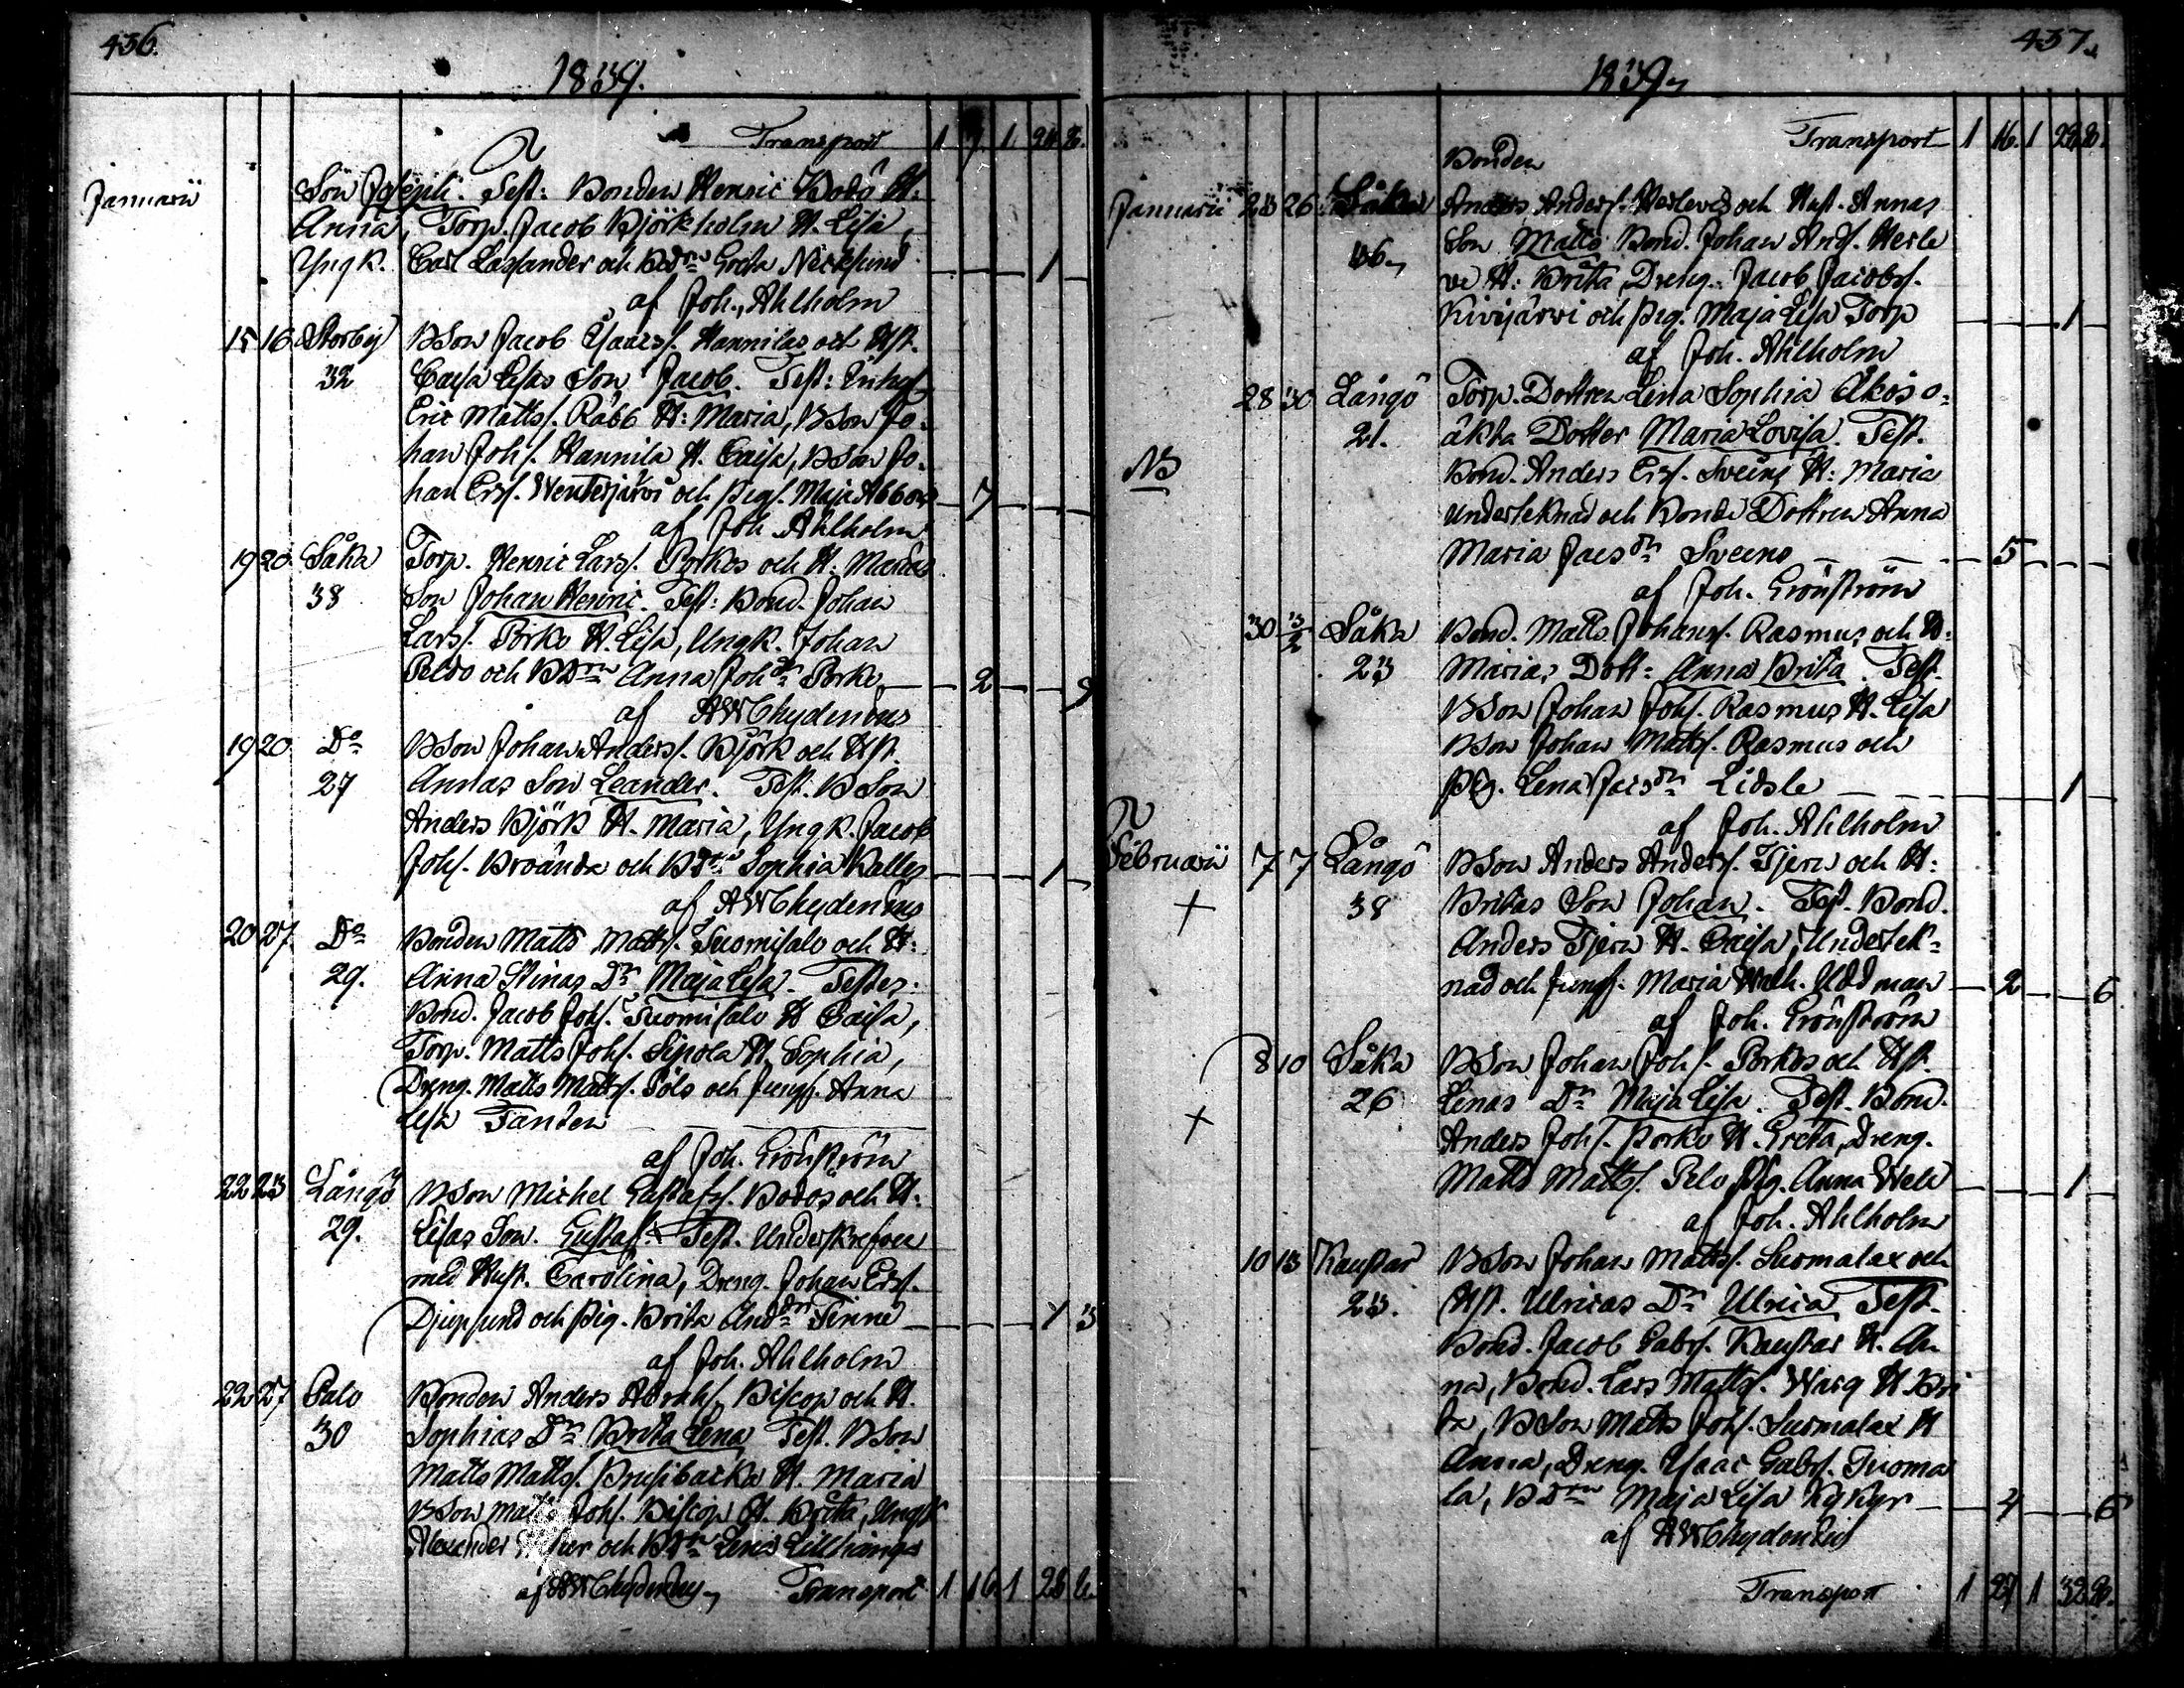 436.
1839.
Transport 1 9. 1 24 2.
Januarii
Son Joseph. Test: Bonden Henric Bodö H:
Anna, Torp. Jacob Björkholm H. Lisa,
Yngk. Carl Lassander och BDrn Greta Necksund — 1
af Joh. Ahlholm
15 16 Storby BSon Jacob Isacss. Hannilas och Hst.
32 Caisa Lisas Son Jacob. Test: Enkes
Eric Matts. Rabb H: Maria, BSon Jo-
han Johs. Hannila H. Caisa, BSon Jo-
han Ers. Wenterjärvi och Pigs. Maja Abbors — 7
af Joh Ahlholm
19 20 Såka Torp. Henric Larss. Porkos och H. Marias
38 Son Johan Henric. Test: Bond. Johan
Larss. Porko H. Lisa, Ungk. Johan
Peldo och BDrn Anna Johdr Porko — 2 — 9
af AWChydenius
19 20 Do BSon Johan Anderss. Björk och Hst.
27 Annas Son Leander. Test. BSon
Anders Björk H. Maria, Yngk. Jacob
Johs. Broända och BDrn Sophia Kalles — 1
af AWChydenius
20 27 Do Bonden Matts Matts. Suomisalo och H:
29. Anna Stinas Dr Maja Lisa. Testes:
Bond. Jacob Johs. Suomisalo H Caisa,
Torp. Matts Johs. Sipola H. Sophia,
Dreng. Matts Matts. Pöls och Jungf. Anna
Lisa Fanten
af Joh. Grönström
22 23 Långö BSon Michel Gustafs. Bodös och H:
29. Lisas Son. Gustaf. Test. Underskrefven
med Hust. Carolina, Dreng. Johan Erss.
Djupsund och Pig. Brita Anddr Finne — 1 3
af Joh. Ahlholm
22 27 Palo Bonden Anders Abrahs. Biscop och H.
30 Sophias Dr Brita Lena Test. BSon
Matts Matts. Brusibacka H. Maria
BSon Matts Johs. Biscop H. Brita, Ungk
Alexander och BDrn Lena Lillhanga
af AWChydenius Transport 1 16 1 28 6.
437.
1839.
Transport 1 16. 1 28 8.
Bonden
Januarii 23 26 Såka Anders Anderss. Herlevis och Hust. Annas
46. Son Matts Bond. Johan Ands. Herle
vi H: Brita, Dreng. Jacob Jacobs.
Kivijärvi och Pig. Maja Lisa Torp — 1
af Joh. Ahlholm
28 30 Långö Torp. Dottren Lena Sophia Åkös o-
21. äkta Dotter Maria Lovisa. Test.
NB Bond. Anders Ers. Sveins H: Maria
underteknad och Bonde Dottren Anna
Maria Jacsdr Sveens — 5
af Joh. Grönström
30 3/2 Såka Bond. Matts Johans. Rasmus och H:
23 Marias Dott: Anna Brita. Test.
BSon Johan Johs. Rasmus H. Lisa
BSon Johan Matts. Rasmus och
Pig. Lena Jacsdr Lidsle — 1
af Joh. Ahlholm
Februarii 7 7 Långö BSon Anders Anderss. Tjern och H:
+ 38 Britas Son Johan. Test. Bond.
Anders Tjern H. Caisa, Undertek-
nad och Jungf: Maria Wilh. Uddman — 2 — 6
af Joh. Grönström
8 10 Såka BSon Johan Johs. Porkos och Hst.
+ 26 Lenas Dr Maja Lisa. Test. Bond.
Anders Johs. Porko H. Greta, Dreng.
Matts Matts. Pelo Pig. Anna Wele — 1
af Joh. Ahlholm
10 13 Kaustar BSon Johan Matts. Suomalax och
23. Hst. Ulricas Dr Ulrica Test.
Bond. Jacob Gabrs. Kaustar H. An
na, Bond. Lars Matts. Warg H Bri
ta, BSon Matts Johs. Suomalax H
Anna, Dreng. Isaac Gabrs. Tuoma
la, BDrn Maja Lisa Kykyr — 4 — 6
af AWChydenius
Transport 1 27 1 32 2.